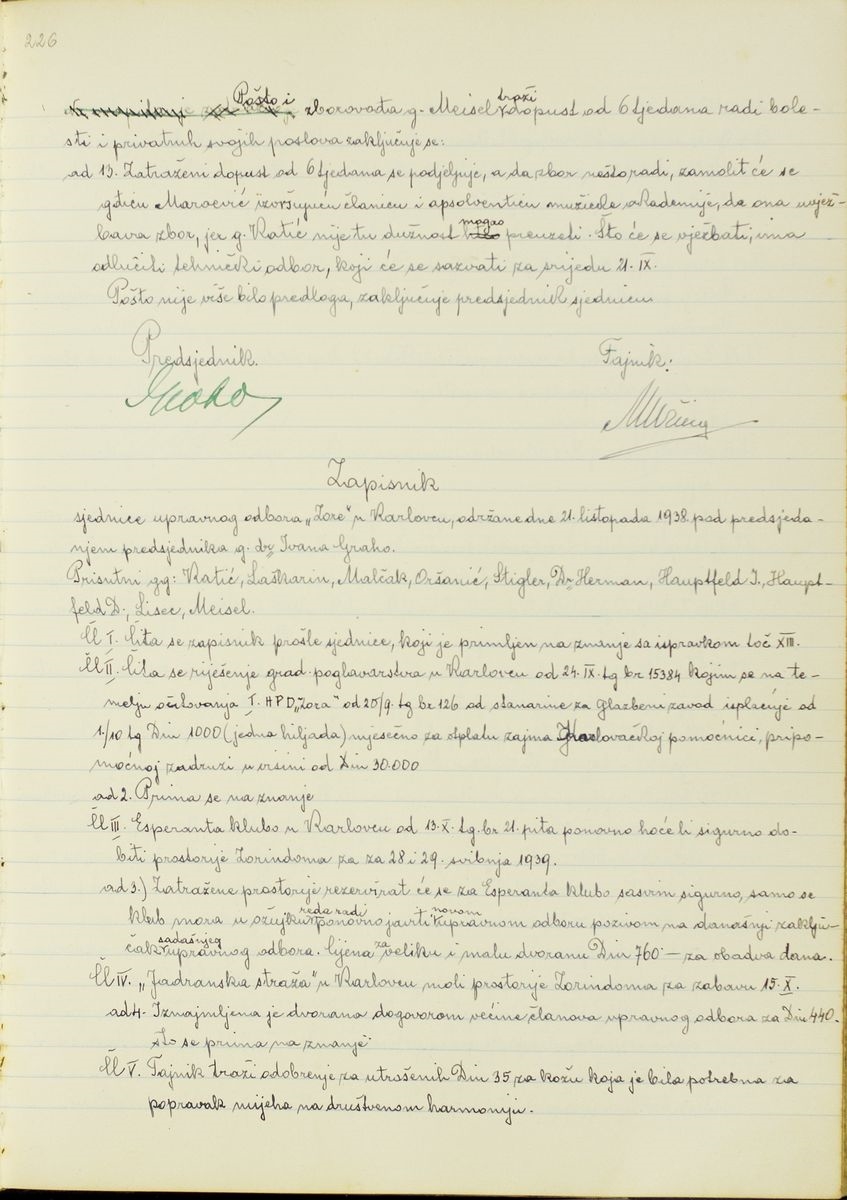 226
Pošto i zborovođa g. Meisel traži dopust od 6 tjedana radi bole-
sti i privatnih svojih poslova zaključuje se:
ad 13. Zatraženi dopust od 6 tjedana se podjeljuje, a da zbor nešto radi, zamolit će se
gđicu Maroević izvršujuću članicu i apsolventicu muzičke akademije, da ona uvjež-
bava zbor, jer g. Katić nije tu dužnost mogao preuzeti. Što će se vježbati, ima
odlučiti tehnički odbor, koji će se sazvati za srijedu 21. IX.
Pošto nije više bilo predloga, zaključuje predsjednik sjednicu
Predsjednik. Tajnik:
Zapisnik
sjednice upravnog odbora „Zore" u Karlovcu, održane dne 21. listopada 1938. pod predsjeda-
njem predsjednika g. dr. Ivana Graho.
Prisutni gg: Katić, Laškarin, Malčak, Oršanić, Stigler, Dr. Herman, Hauptfeld I., Haupt-
feld D., Lisec, Meisel.
Čl I. Čita se zapisnik prošle sjednice, koji je primljen na znanje sa ispravkom toč XIII.
Čl II. Čita se riješenje grad. poglavarstva u Karlovcu od 24. IX. tg br 15384 kojim se na te-
melju očitovanja I. HPD „Zora" od 20/9. tg br 126 od stanarine za Glazbeni zavod isplaćuje od
1./10 tg Din 1000 (jedna hiljada) mjesečno za otplatu zajma Karlovačkoj pomoćnici, pripo-
moćnoj zadruzi u visini od Din 30.000
ad 2. Prima se na znanje
Čl III. Esperanta klubo u Karlovcu od 13. X. tg. br 21. pita ponovno hoće li sigurno do-
biti prostorije Zorindoma za za 28 i 29. svibnja 1939.
ad 3.) Zatražene prostorije rezervirat će se za Esperanta klubo sasvim sigurno, samo se
klub mora u ožujku reda radi ponovno javiti novom upravnom odboru pozivom na današnji zaklju-
čak sadašnjeg upravnog odbora. Cijena za veliku i malu dvoranu Din 760.— za obadva dana.
Čl IV. „Jadranska straža" u Karlovcu moli prostorije Zorindoma za zabavu 15. X.
ad 4. Iznajmljena je dvorana dogovorom većine članova upravnog odbora za Din 440.
što se prima na znanje.
Čl V. Tajnik traži odobrenje za utrošenih Din 35 za kožu koja je bila potrebna za
popravak mijeha na društvenom harmoniju.